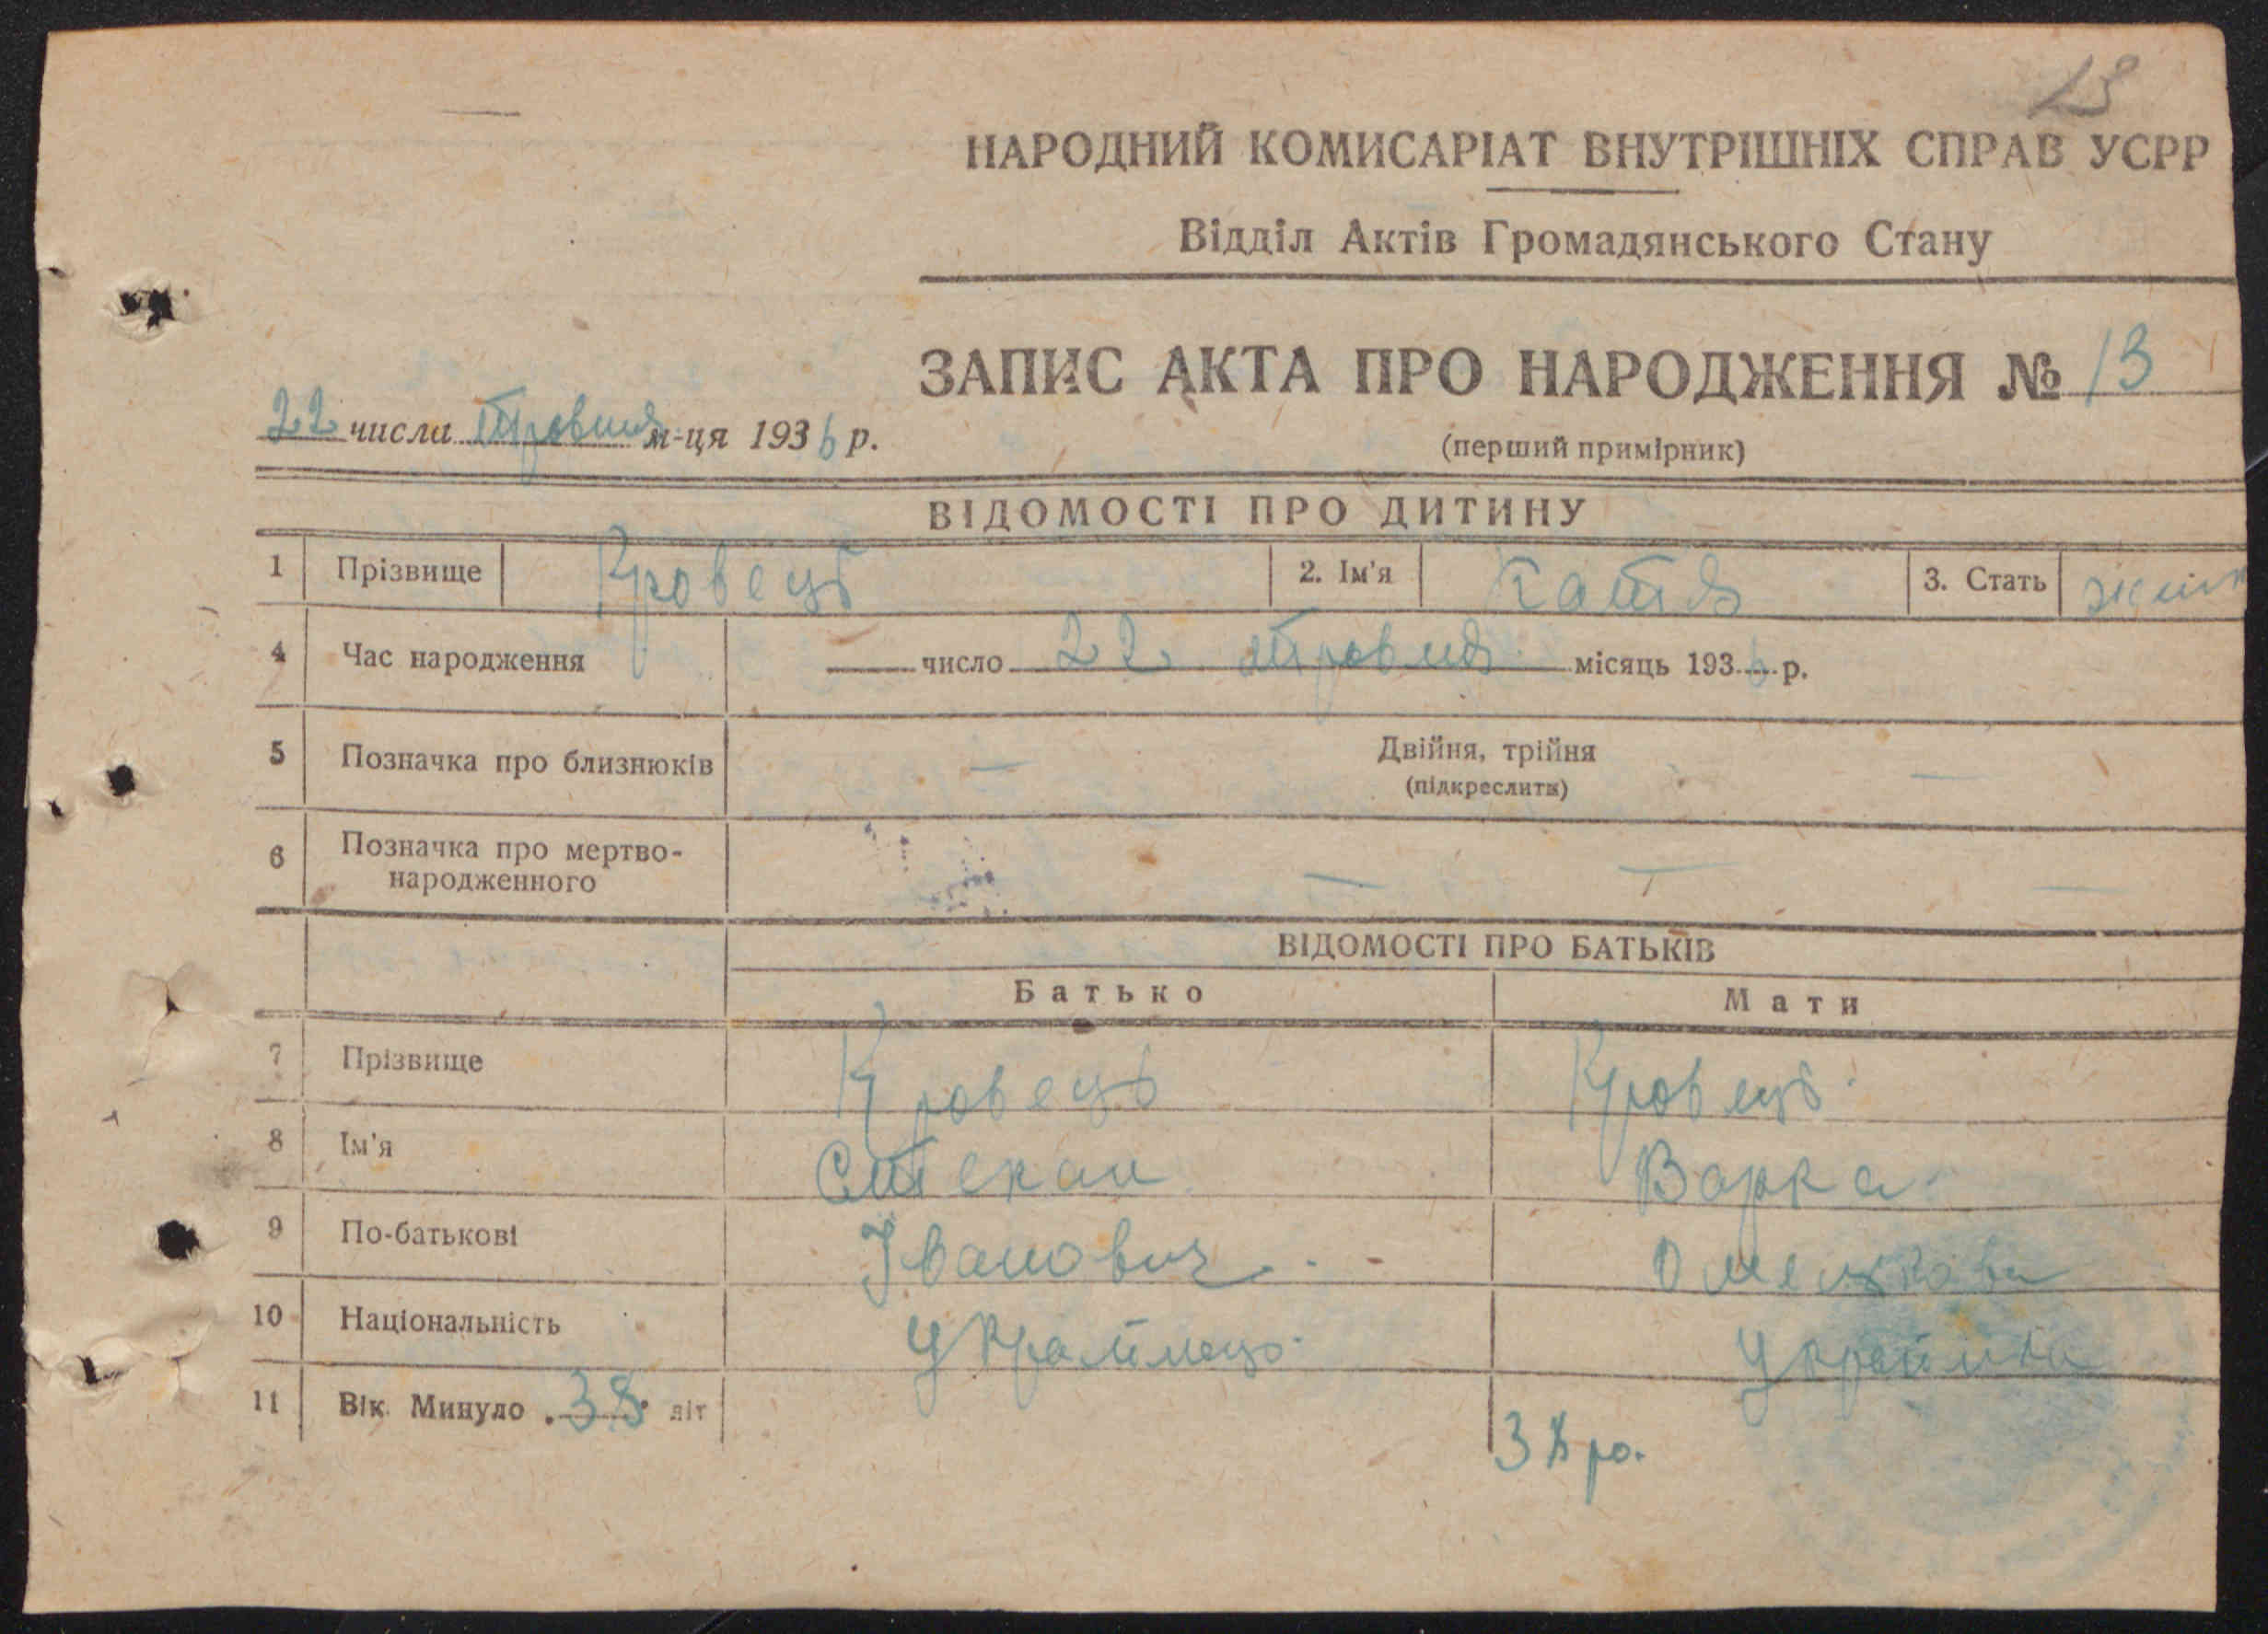 13
НАРОДНИЙ КОМИСАРІАТ ВНУТРІШНІХ СПРАВ УСРР
Відділ Актів Громадянського Стану
ЗАПИС АКТА ПРО НАРОДЖЕННЯ № 13
22 числа травня м-ця 1936 р.
(перший примірник)
ВІДОМОСТІ ПРО ДИТИНУ
1 Прізвище Кровець 2. Ім'я Катя 3. Стать жін
4 Час народження число 22 травня місяць 1936 р.
5 Позначка про близнюків — Двійня, трійня —
(підкреслити)
6 Позначка про мертво-
народженного — — —
ВІДОМОСТІ ПРО БАТЬКІВ
Батько Мати
7 Прізвище Кровець Кровець
8 Ім'я Степан Варка
9 По-батькові Іванович
10 Національність Українець Українка
11 Вік Минуло 38 літ